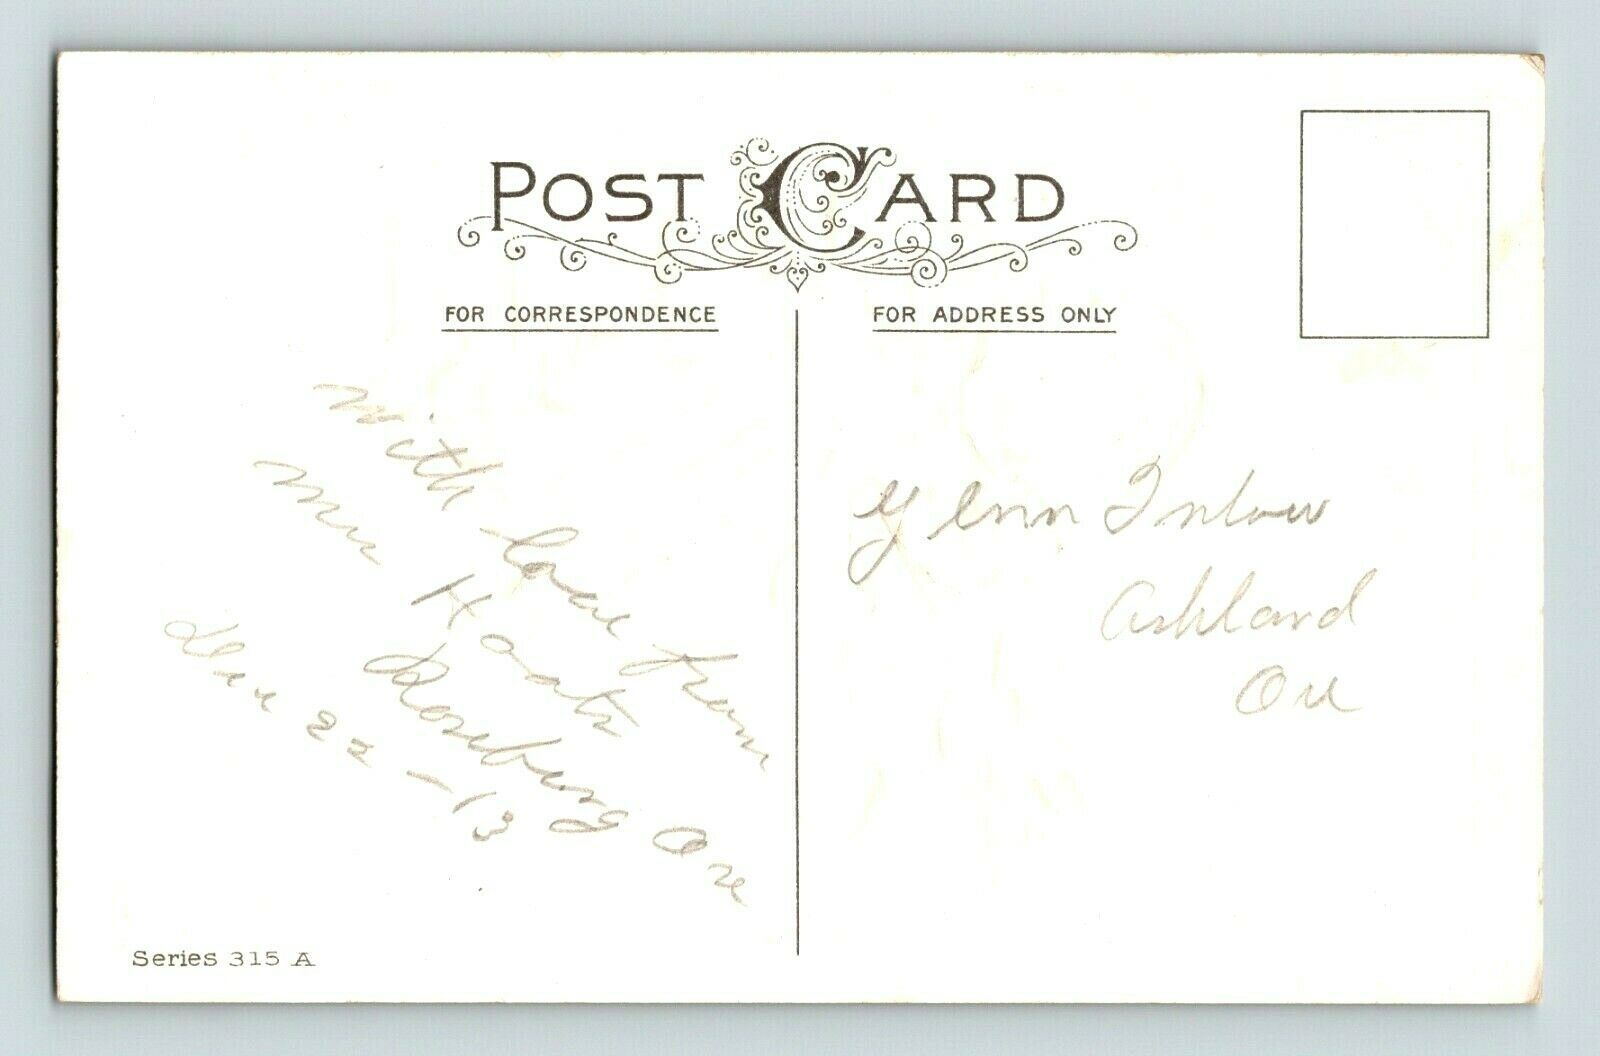 POST CARD
FOR CORRESPONDENCE
FOR ADDRESS ONLY
With love from
Mrs
Roseburg Ore
Dec 22-13
Glenn Inlow
Ashland
Ore
Series 315 A